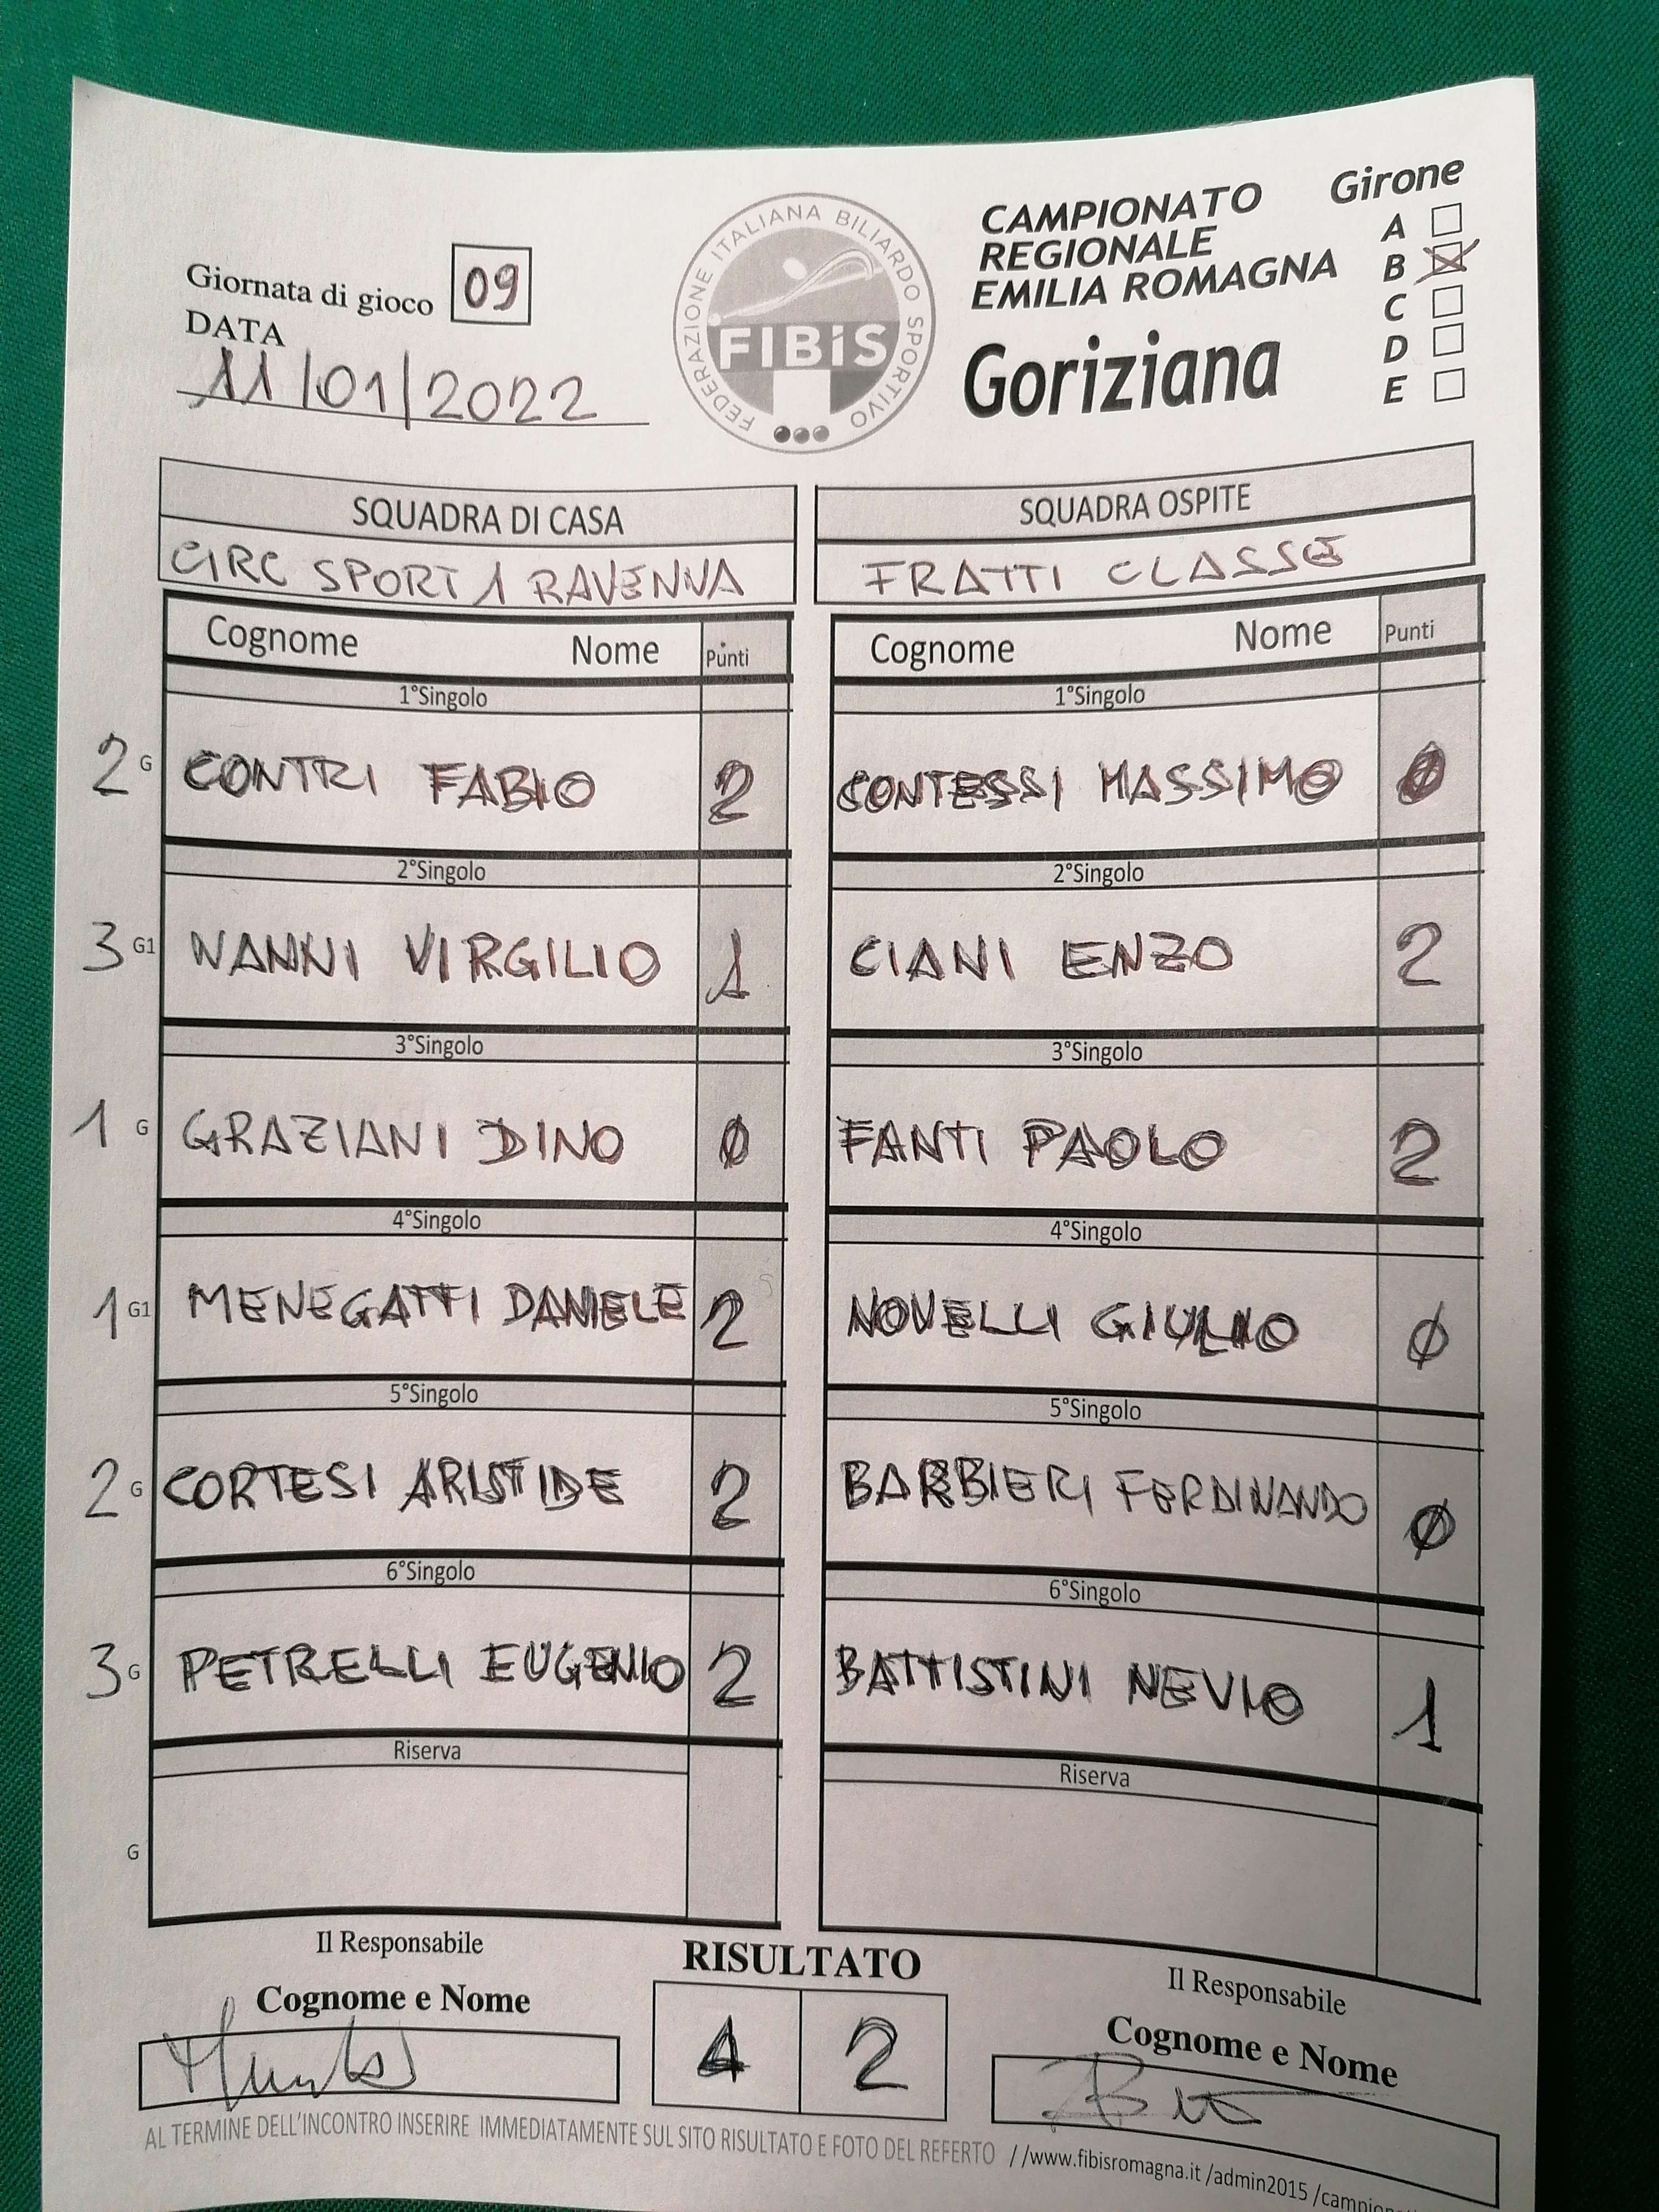 Giornata di gioco 09
DATA
11/01/2022
FEDERAZIONE ITALIANA BILIARDO SPORTIVO
FIBiS
CAMPIONATO
REGIONALE
EMILIA ROMAGNA
Goriziana
Girone
A
B
C
D
E
SQUADRA DI CASA
CIRC SPORT 1 RAVENNA
SQUADRA OSPITE
FRATTI CLASSE
Cognome Nome Punti
Cognome Nome Punti
1°Singolo
1°Singolo
2 G CONTRI FABIO 2
CONTESSI MASSIMO 0
2°Singolo
2°Singolo
3 G1 NANNI VIRGILIO 1
CIANI ENZO 2
3°Singolo
3°Singolo
1 G GRAZIANI DINO 0
FANTI PAOLO 2
4°Singolo
4°Singolo
1 G1 MENEGATTI DANIELE 2
NOVELLI GIULIO 0
5°Singolo
5°Singolo
2 G CORTESI ARISTIDE 2
BARBIERI FERDINANDO 0
6°Singolo
6°Singolo
3 G PETRELLI EUGENIO 2
BATTISTINI NEVIO 1
Riserva
Riserva
G
Il Responsabile
Cognome e Nome
RISULTATO
4 2
Il Responsabile
Cognome e Nome
AL TERMINE DELL'INCONTRO INSERIRE IMMEDIATAMENTE SUL SITO RISULTATO E FOTO DEL REFERTO //www.fibisromagna.it /admin2015 /campionat